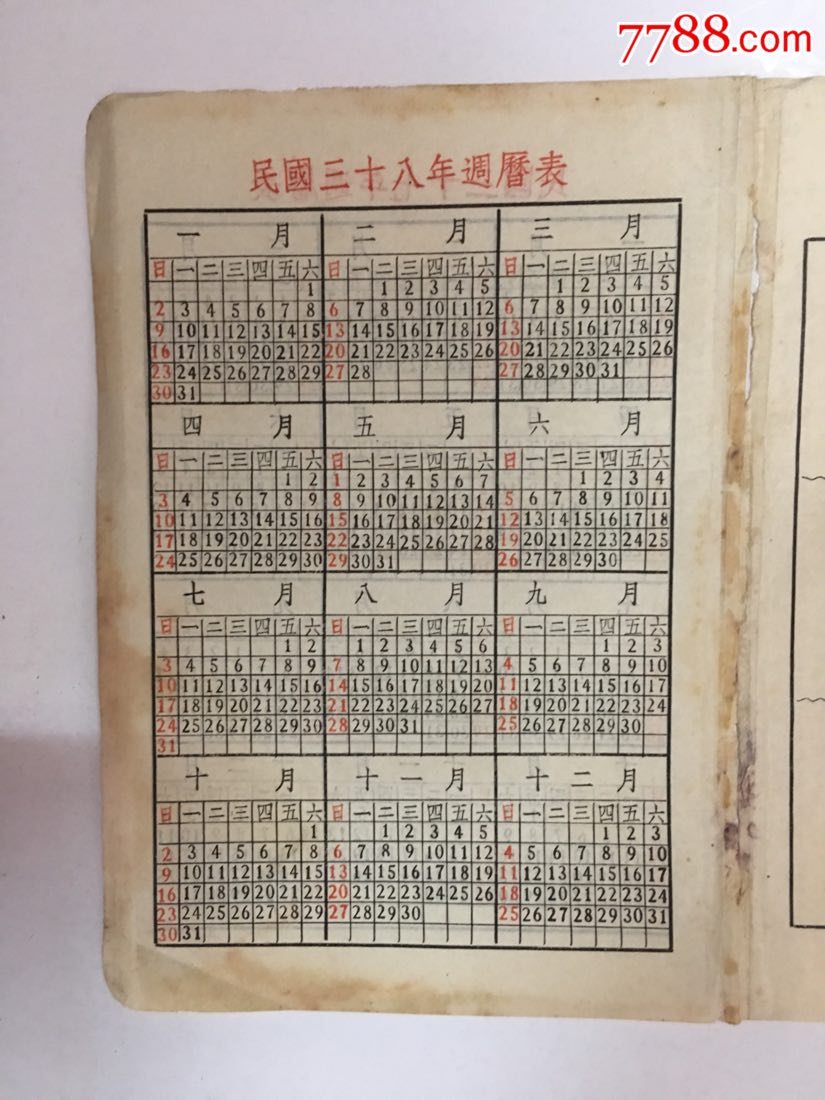 7788.com
民國三十八年週曆表
一 月
日 一 二 三 四 五 六
1
2 3 4 5 6 7 8
9 10 11 12 13 14 15
16 17 18 19 20 21 22
23 24 25 26 27 28 29
30 31
二 月
日 一 二 三 四 五 六
1 2 3 4 5
6 7 8 9 10 11 12
13 14 15 16 17 18 19
20 21 22 23 24 25 26
27 28
三 月
日 一 二 三 四 五 六
1 2 3 4 5
6 7 8 9 10 11 12
13 14 15 16 17 18 19
20 21 22 23 24 25 26
27 28 29 30 31
四 月
日 一 二 三 四 五 六
1 2
3 4 5 6 7 8 9
10 11 12 13 14 15 16
17 18 19 20 21 22 23
24 25 26 27 28 29 30
五 月
日 一 二 三 四 五 六
1 2 3 4 5 6 7
8 9 10 11 12 13 14
15 16 17 18 19 20 21
22 23 24 25 26 27 28
29 30 31
六 月
日 一 二 三 四 五 六
1 2 3 4
5 6 7 8 9 10 11
12 13 14 15 16 17 18
19 20 21 22 23 24 25
26 27 28 29 30
七 月
日 一 二 三 四 五 六
1 2
3 4 5 6 7 8 9
10 11 12 13 14 15 16
17 18 19 20 21 22 23
24 25 26 27 28 29 30
31
八 月
日 一 二 三 四 五 六
1 2 3 4 5 6
7 8 9 10 11 12 13
14 15 16 17 18 19 20
21 22 23 24 25 26 27
28 29 30 31
九 月
日 一 二 三 四 五 六
1 2 3
4 5 6 7 8 9 10
11 12 13 14 15 16 17
18 19 20 21 22 23 24
25 26 27 28 29 30
十 月
日 一 二 三 四 五 六
1
2 3 4 5 6 7 8
9 10 11 12 13 14 15
16 17 18 19 20 21 22
23 24 25 26 27 28 29
30 31
十一月
日 一 二 三 四 五 六
1 2 3 4 5
6 7 8 9 10 11 12
13 14 15 16 17 18 19
20 21 22 23 24 25 26
27 28 29 30
十二月
日 一 二 三 四 五 六
1 2 3
4 5 6 7 8 9 10
11 12 13 14 15 16 17
18 19 20 21 22 23 24
25 26 27 28 29 30 31